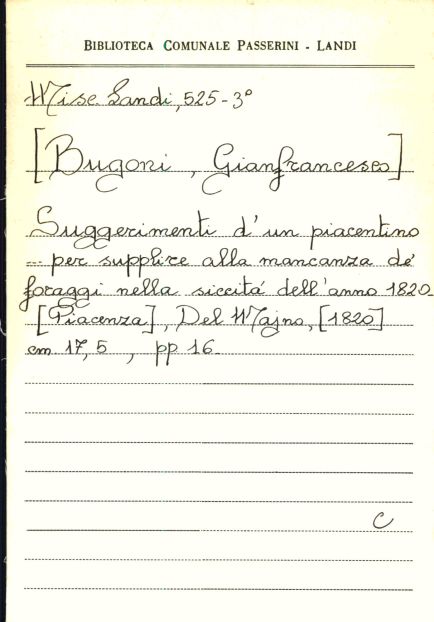 BIBLIOTECA COMUNALE PASSERINI - LANDI
Misc. Landi, 525-3°
[Bugoni, Gianfrancesco]
Suggerimenti d'un piacentino
... per supplire alla mancanza de'
foraggi nella siccitá dell'anno 1820
[Piacenza], Del Majno, [1820]
cm. 17,5, pp 16.
C